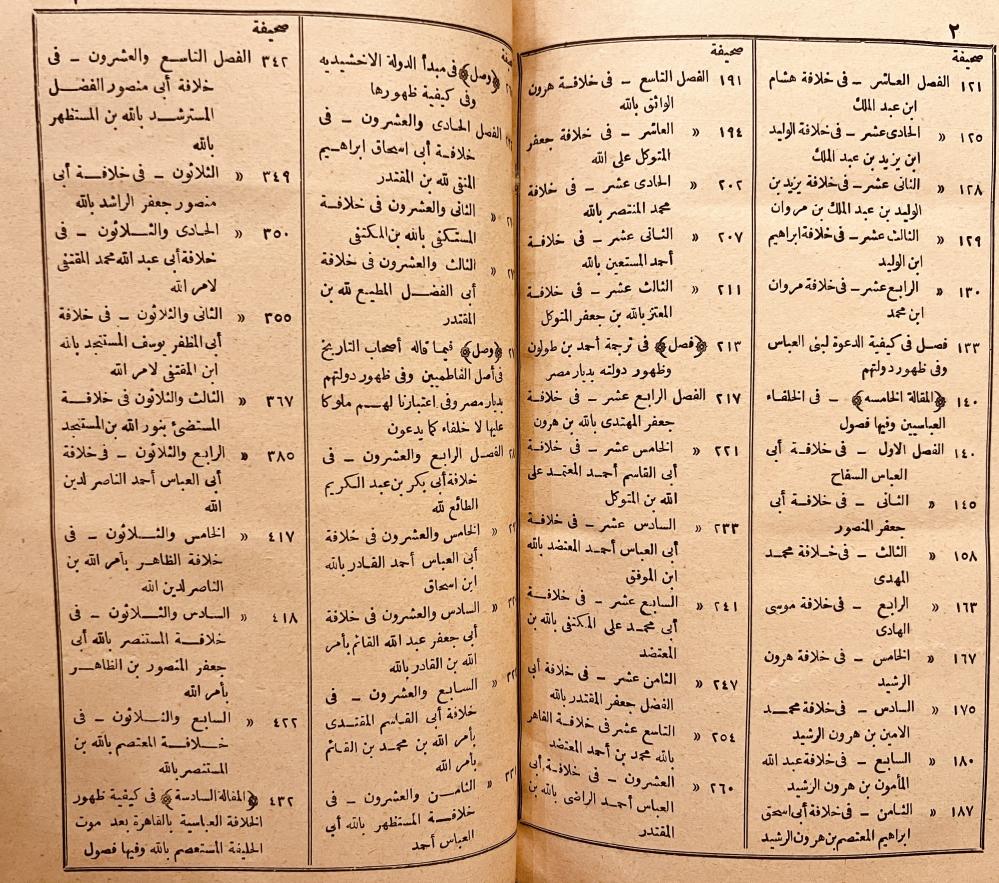 ٢
صحيفة
١٢١ الفصل العاشر ـ فى خلافة هشام
ابن عبد الملك
١٢٥ » الحادى عشر ـ فى خلافة الوليد
ابن يزيد بن عبد الملك
١٢٨ » الثانى عشر ـ فى خلافة يزيد بن
الوليد بن عبد الملك بن مروان
١٢٩ » الثالث عشر ـ فى خلافة ابراهيم
ابن الوليد
١٣٠ » الرابع عشر ـ فى خلافة مروان
ابن محمد
١٣٣ فصل فى كيفية الدعوة لبنى العباس
وفى ظهور دولتهم
١٤٠ ﴿المقالة الخامسه﴾ ـ فى الخلفاء
العباسيين وفيها فصول
١٤٠ الفصل الاول ـ فى خلافة أبى
العباس السفاح
١٤٥ » الثانى ـ فى خلافة أبى
جعفر المنصور
١٥٨ » الثالث ـ فى خلافة محمد
المهدى
١٦٣ » الرابع ـ فى خلافة موسى
الهادى
١٦٧ » الخامس ـ فى خلافة هرون
الرشيد
١٧٥ » السادس ـ فى خلافة محمد
الامين بن هرون الرشيد
١٨٠ » السابع ـ فى خلافة عبد الله
المأمون بن هرون الرشيد
١٨٧ » الثامن ـ فى خلافة أبى اسحق
ابراهيم المعتصم بن هرون الرشيد
صحيفة
١٩١ الفصل التاسع ـ فى خلافة هرون
الواثق بالله
١٩٤ » العاشر ـ فى خلافة جعفر
المتوكل على الله
٢٠٢ » الحادى عشر ـ فى خلافة
محمد المنتصر بالله
٢٠٧ » الثانى عشر ـ فى خلافة
أحمد المستعين بالله
٢١١ » الثالث عشر ـ فى خلافة
المعتز بالله بن جعفر المتوكل
٢١٣ ﴿فصل﴾ فى ترجمة أحمد بن طولون
وظهور دولته بديار مصر
٢١٧ الفصل الرابع عشر ـ فى خلافة
جعفر المهتدى بالله بن هرون
٢٢١ » الخامس عشر ـ فى خلافة
أبى القاسم أحمد المعتمد على
الله بن المتوكل
٢٣٣ » السادس عشر ـ فى خلافة
أبى العباس أحمد المعتضد بالله
ابن الموفق
٢٤١ » السابع عشر ـ فى خلافة
أبى محمد على المكتفى بالله بن
المعتضد
٢٤٧ » الثامن عشر ـ فى خلافة أبى
الفضل جعفر المقتدر بالله
٢٥٤ » التاسع عشر فى خلافة القاهر
بالله محمد بن أحمد المعتضد
٢٦٠ » العشرون ـ فى خلافة أبى
العباس أحمد الراضى بالله بن
المقتدر
﴿وصل﴾ فى مبدأ الدولة الاخشيديه
وفى كيفية ظهورها
الفصل الحادى والعشرون ـ فى
خلافة أبى اسحاق ابراهيم
المتقى لله بن المقتدر
» الثانى والعشرون فى خلافة
المستكفى بالله بن المكتفى
» الثالث والعشرون فى خلافة
أبى الفضل المطيع لله بن
المقتدر
﴿وصل﴾ فيما قاله أصحاب التاريخ
فى أصل الفاطميين وفى ظهور دولتهم
بديار مصر وفى اعتبارنا لهم ملوكا
عليها لا خلفاء كما يدعون
الفصل الرابع والعشرون ـ فى
خلافة أبى بكر بن عبد الكريم
الطائع لله
» الخامس والعشرون فى خلافة
أبى العباس أحمد القادر بالله
ابن اسحاق
» السادس والعشرون فى خلافة
أبى جعفر عبد الله القائم بأمر
الله بن القادر بالله
» السابع والعشرون ـ فى
خلافة أبى القاسم المقتدى
بأمر الله بن محمد بن القائم
بأمر الله
» الثامن والعشرون ـ فى
خلافة المستظهر بالله أبى
العباس أحمد
صحيفة
٣٤٢ الفصل التاسع والعشرون ـ فى
خلافة أبى منصور الفضل
المسترشد بالله بن المستظهر
بالله
٣٤٩ » الثلاثون ـ فى خلافة أبى
منصور جعفر الراشد بالله
٣٥٠ » الحادى والثلاثون ـ فى
خلافة أبى عبد الله محمد المقتفى
لامر الله
٣٥٥ » الثانى والثلاثون ـ فى خلافة
أبى المظفر يوسف المستنجد بالله
ابن المقتفى لامر الله
٣٦٧ » الثالث والثلاثون فى خلافة
المستضئ بنور الله بن المستنجد
٣٨٥ » الرابع والثلاثون ـ فى خلافة
أبى العباس أحمد الناصر لدين
الله
٤١٧ » الخامس والثلاثون ـ فى
خلافة الظاهر بأمر الله بن
الناصر لدين الله
٤١٨ » السادس والثلاثون ـ فى
خلافة المستنصر بالله أبى
جعفر المنصور بن الظاهر
بأمر الله
٤٢٢ » السابع والثلاثون ـ فى
خلافة المعتصم بالله بن
المستنصر بالله
٤٣٢ ﴿المقالة السادسة﴾ فى كيفية ظهور
الخلافة العباسية بالقاهرة بعد موت
الخليفة المستعصم بالله وفيها فصول